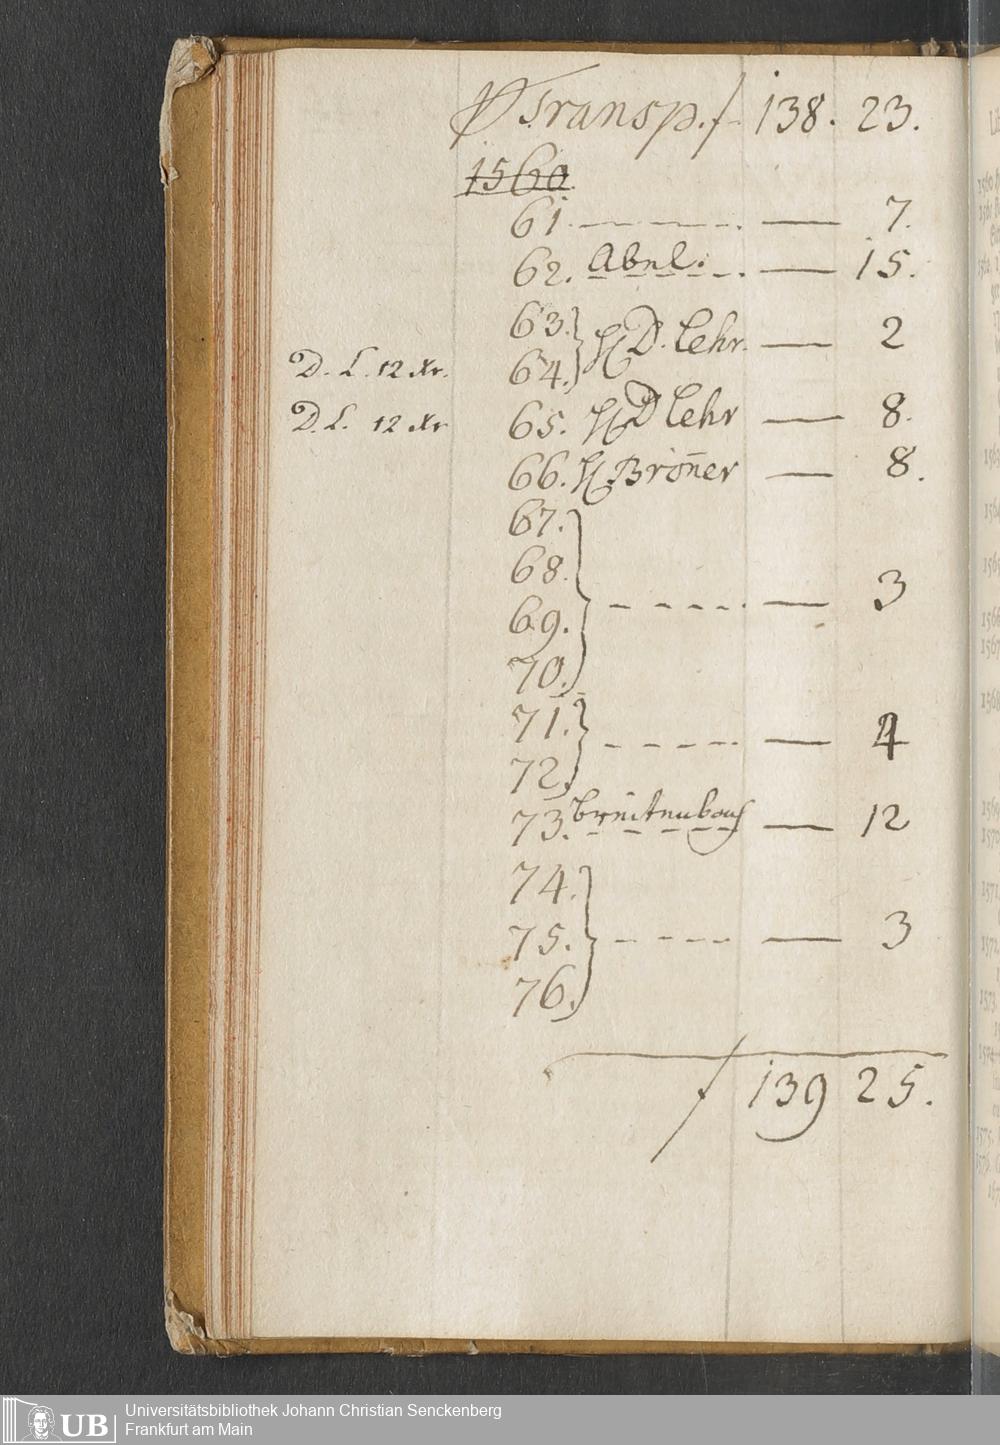 P Transp. f 138. 23.
1560
61. — 7.
62. Abel. — 15.
63.
64. H D. Lehr. — 2
D. L. 12 Xr.
D. L. 12 Xr 65. H D Lehr — 8.
66. H. Broñer — 8.
67.
68.
69. — 3
70.
71. — 4
72.
73. Breitenbauch — 12
74.
75. — 3
76.
f 139 25.
UB Universitätsbibliothek Johann Christian Senckenberg
Frankfurt am Main